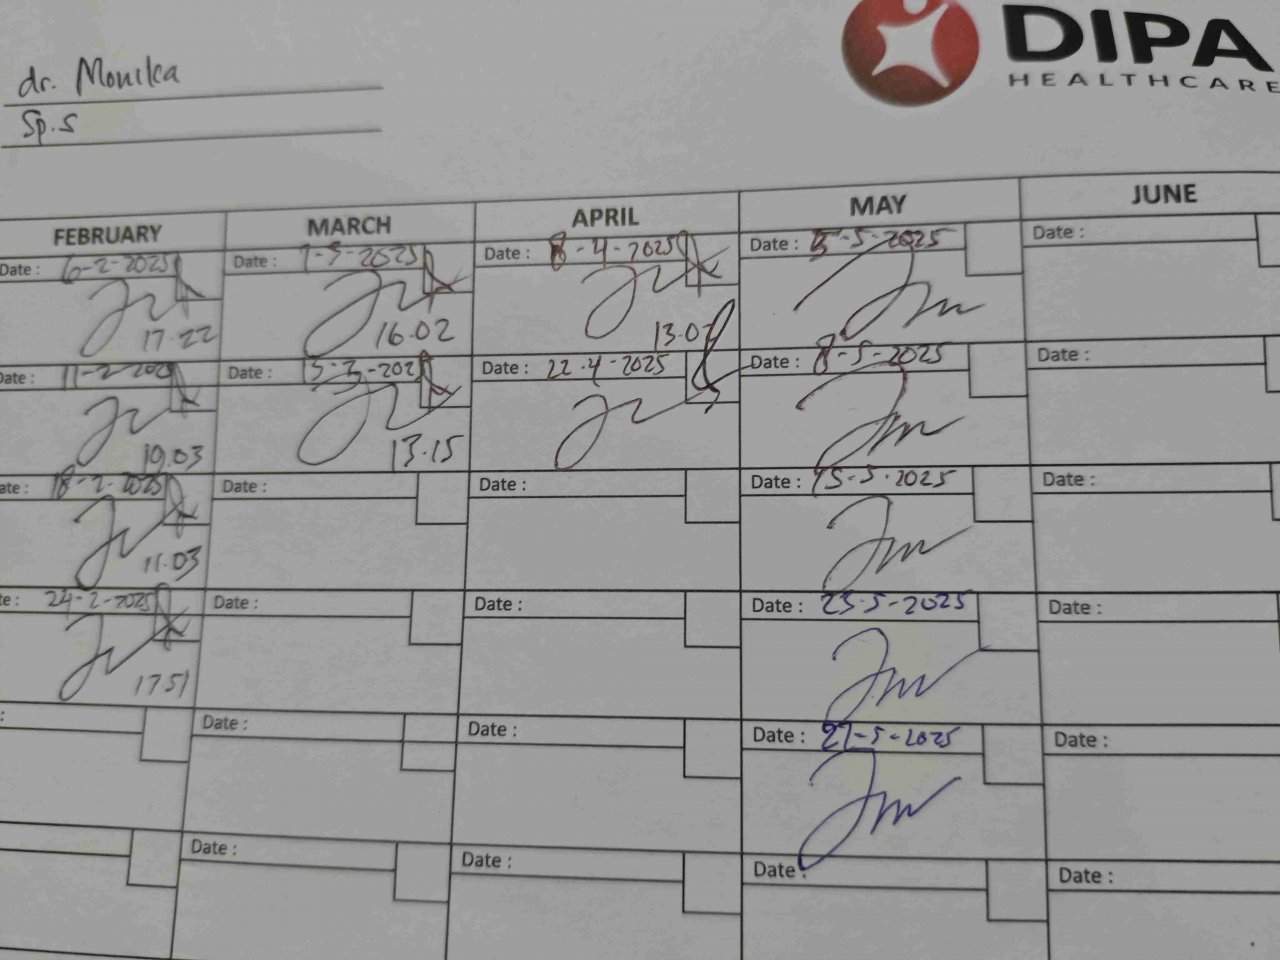 DIPA
HEALTHCARE
dr. Monika
Sp.S
FEBRUARY MARCH APRIL MAY JUNE
Date : 6-2-2025 Date : 7-3-2025 Date : 8-4-2025 Date : 5-5-2025 Date :
17.22 16.02 13.07
Date : 11-2-2025 Date : 13-3-2025 Date : 22.4-2025 Date : 8-5-2025 Date :
19.03 13.15
ate : 18-2-2025 Date : Date : Date : 15-5-2025 Date :
11.03
te : 24-2-2025 Date : Date : Date : 23-5-2025 Date :
17 51
: Date : Date : Date : 27-5-2025 Date :
Date : Date : Date : Date :